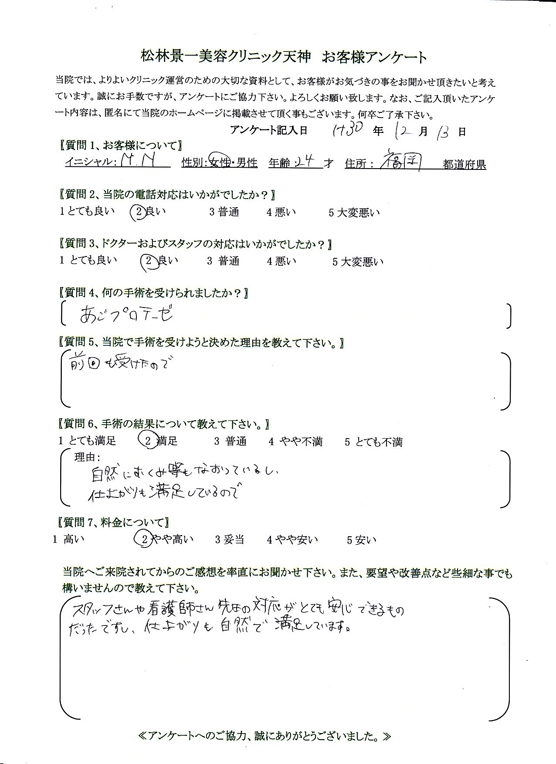 松林景一美容クリニック天神　お客様アンケート
当院では、よりよいクリニック運営のための大切な資料として、お客様がお気づきの事をお聞かせ頂きたいと考え
ています。誠にお手数ですが、アンケートにご協力下さい。よろしくお願い致します。なお、ご記入頂いたアンケ
ート内容は、匿名にて当院のホームページに掲載させて頂く事もございます。何卒ご了承下さい。
アンケート記入日　H30 年 12 月 13 日
〖質問1、お客様について〗
イニシャル: N.N　性別:女性・男性　年齢:24 才　住所: 福岡　都道府県
〖質問2、当院の電話対応はいかがでしたか？〗
1とても良い　2良い　3 普通　4悪い　5大変悪い
〖質問3、ドクターおよびスタッフの対応はいかがでしたか？〗
1 とても良い　2良い　3 普通　4悪い　5大変悪い
〖質問4、何の手術を受けられましたか？〗
あごプロテーゼ
〖質問5、当院で手術を受けようと決めた理由を教えて下さい。〗
前回も受けたので
〖質問6、手術の結果について教えて下さい。〗
1 とても満足　2満足　3 普通　4 やや不満　5 とても不満
理由:
自然にむくみ等もなおっているし、
仕上がりも満足しているので
〖質問7、料金について〗
1 高い　2やや高い　3 妥当　4やや安い　5安い
当院へご来院されてからのご感想を率直にお聞かせ下さい。また、要望や改善点など些細な事でも
構いませんので教えて下さい。
スタッフさんや看護師さん先生の対応がとても安心できるもの
だったですし、仕上がりも自然で満足しています。
≪アンケートへのご協力、誠にありがとうございました。≫